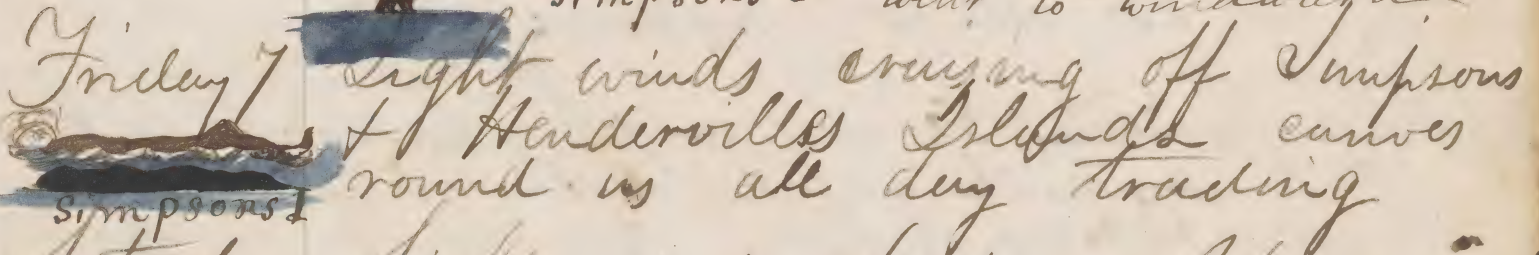 Simpsons
Friday 7 Light winds cruising off Simpsons
& Hendervilles Islands canoes
round us all day trading
Simpsons I